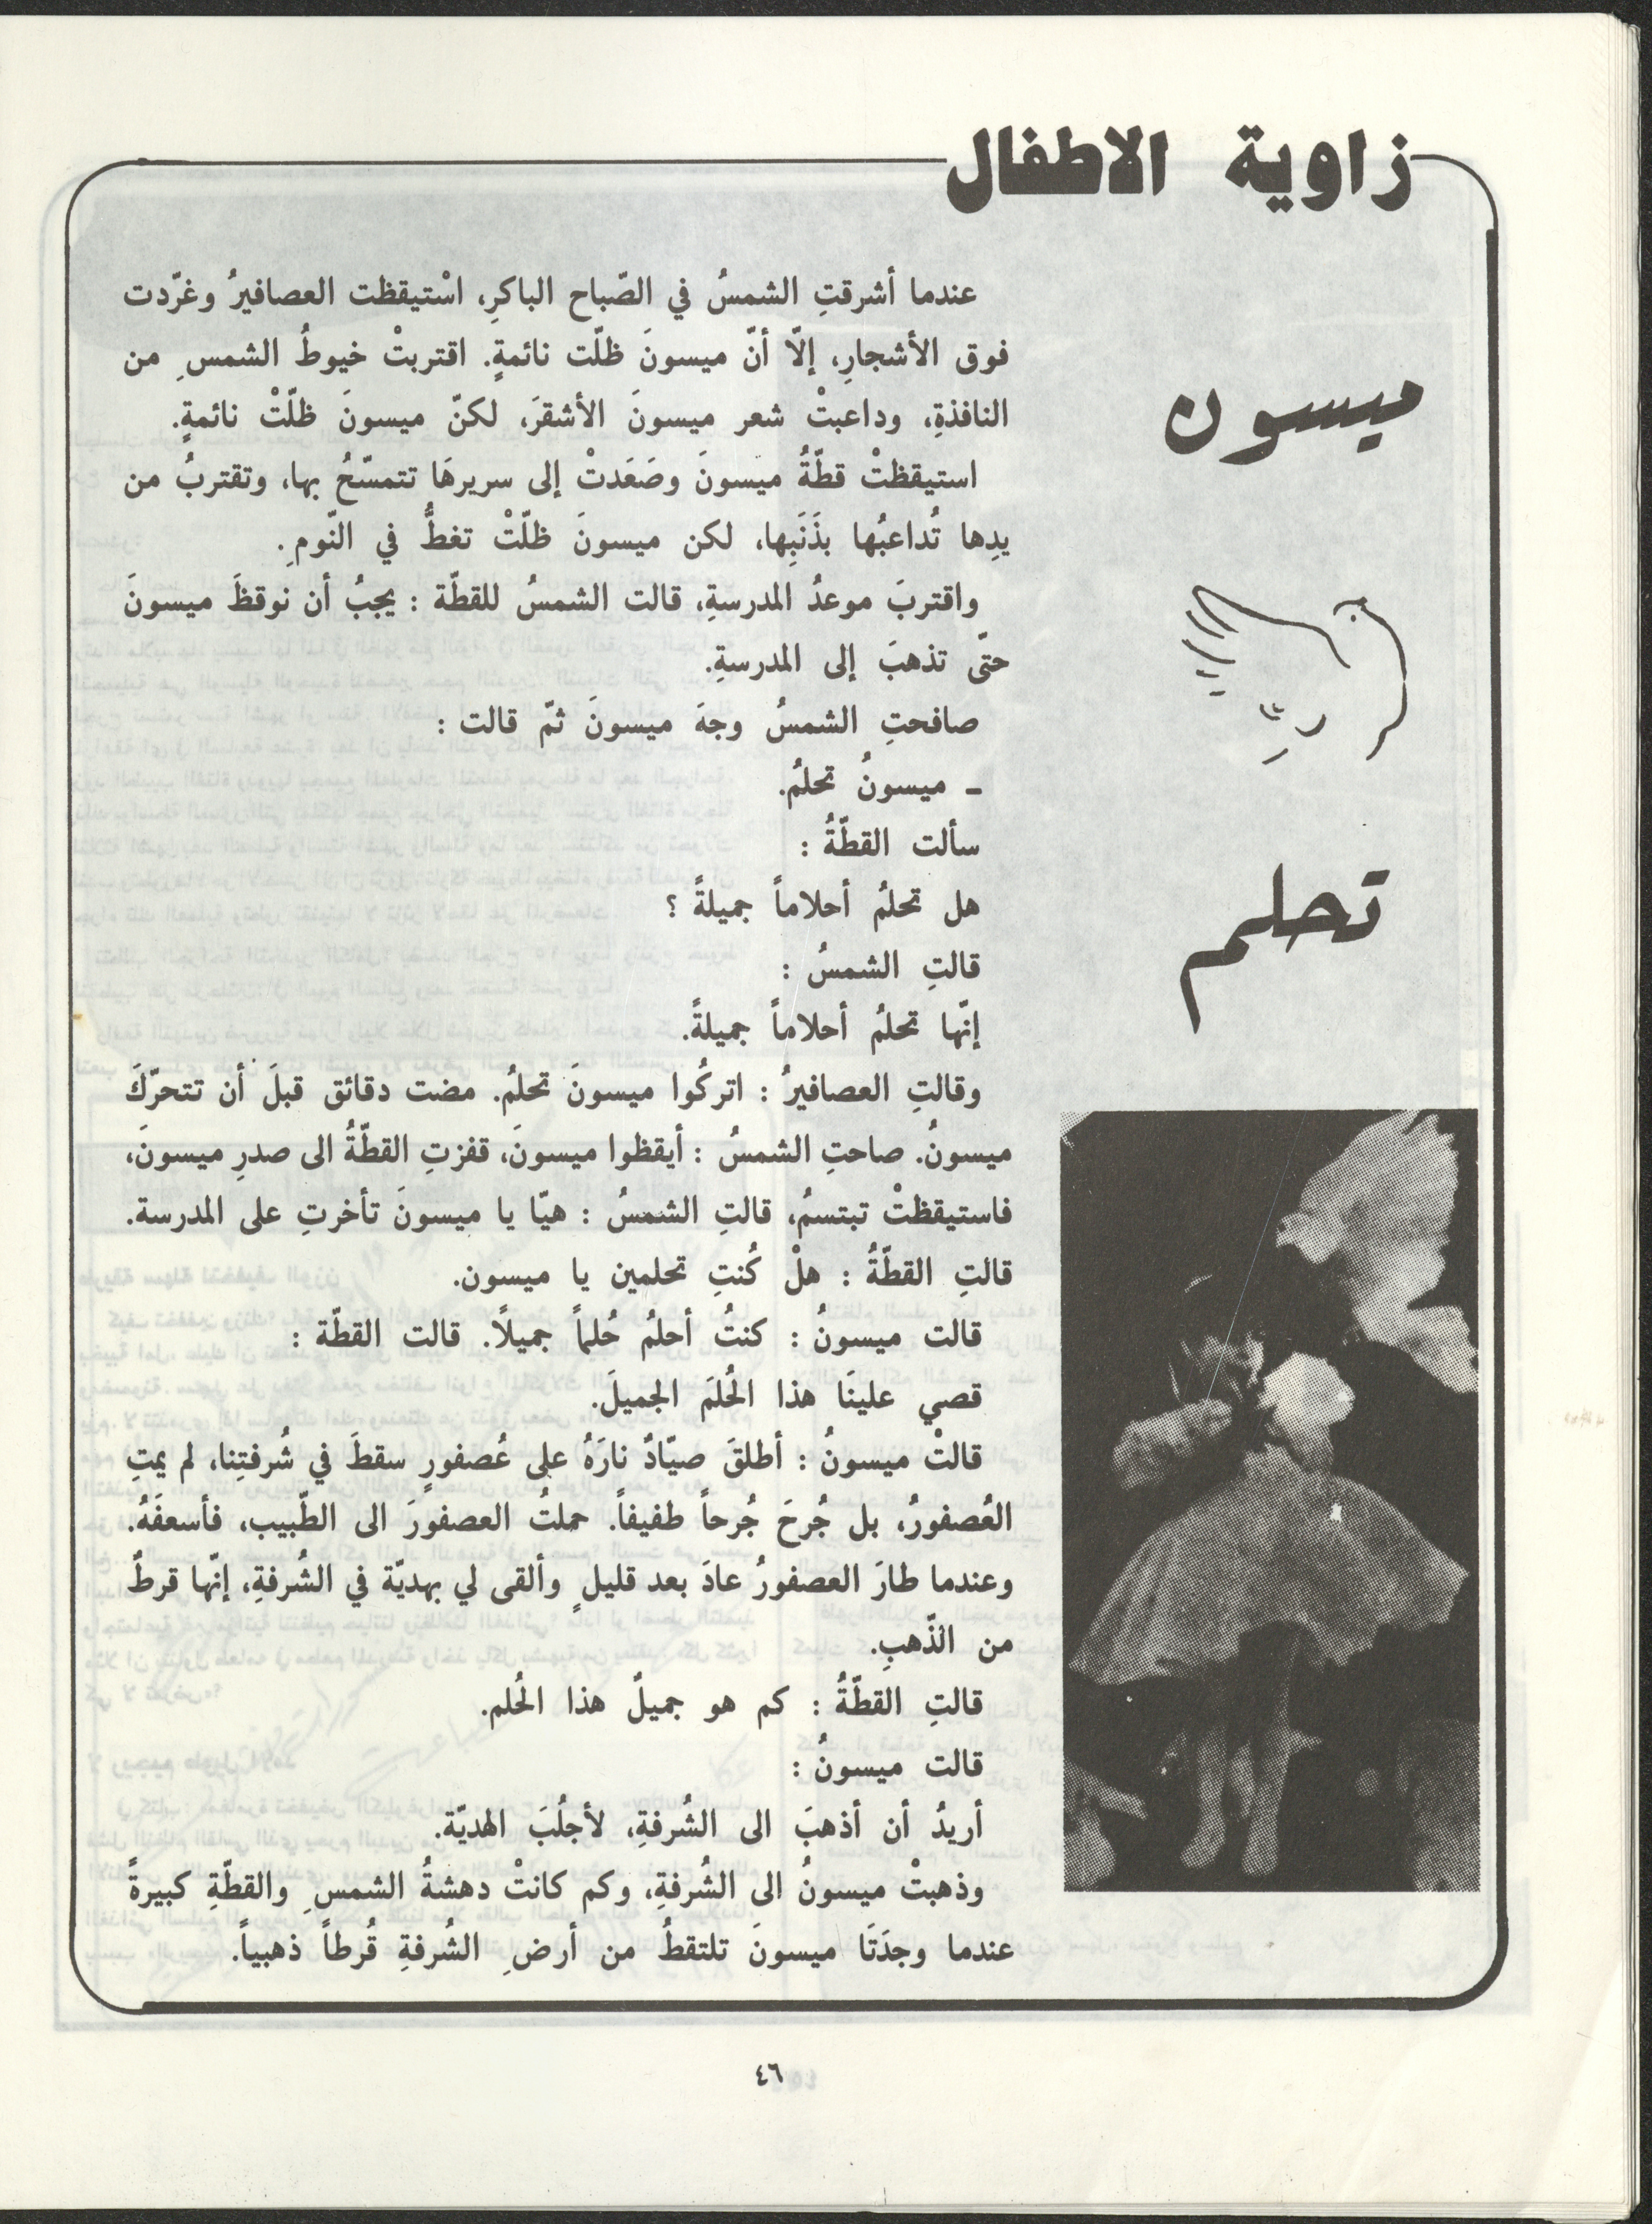 زاوية الاطفال
ميسون
تحلم
عندما أشرقتِ الشمسُ في الصّباح الباكرِ، اسْتيقظت العصافيرُ وغرّدت
فوق الأشجارِ، إلّا أنّ ميسونَ ظلّت نائمةٍ. اقتربتْ خيوطُ الشمسِ من
النافذةِ، وداعبتْ شعر ميسونَ الأشقرَ، لكنّ ميسونَ ظلّتْ نائمةٍ.
استيقظتْ قطّةُ ميسونَ وصَعَدتْ إلى سريرهَا تتمسّحُ بها، وتقتربُ من
يدِها تُداعبُها بذَنَبِها، لكن ميسونَ ظلّتْ تغطُّ في النّومِ.
واقتربَ موعدُ المدرسةِ، قالت الشمسُ للقطّة : يجبُ أن نوقظَ ميسونَ
حتّى تذهبَ إلى المدرسةِ.
صافحتِ الشمسُ وجهَ ميسونَ ثمّ قالت :
ـ ميسونُ تحلمُ.
سألت القطّةُ :
هل تحلمُ أحلاماً جميلةً ؟
قالتِ الشمسُ :
إنّها تحلمُ أحلاماً جميلةً.
وقالتِ العصافيرُ : اتركُوا ميسونَ تحلمُ. مضت دقائق قبلَ أن تتحرّكَ
ميسونُ. صاحتِ الشمسُ : أيقظوا ميسونَ، قفزتِ القطّةُ الى صدرِ ميسونَ،
فاستيقظتْ تبتسمُ، قالتِ الشمسُ : هيّا يا ميسونَ تأخرتِ على المدرسة.
قالتِ القطّةُ : هلْ كُنتِ تحلمين يا ميسون.
قالت ميسونُ : كنتُ أحلمُ حُلماً جميلاً. قالت القطّة :
قصي علينَا هذا الحُلمَ الجميلَ.
قالتْ ميسونُ : أطلقَ صيّادٌ نارَهُ على عُصفورٍ سقطَ في شُرفتِنا، لم يمتِ
العُصفورُ، بل جُرحَ جُرحاً طفيفاً. حملتُ العصفورَ الى الطّبيب، فأسعفَهُ.
وعندما طارَ العصفورُ عادَ بعد قليلٍ وألقى لي بهديّة في الشُرفةِ، إنّها قرطٌ
من الذّهبِ.
قالتِ القطّةُ : كم هو جميلٌ هذا الحُلم.
قالت ميسونُ :
أريدُ أن أذهبَ الى الشُرفةِ، لأجلُبَ الهديّة.
وذهبتْ ميسونُ الى الشُرفةِ، وكم كانتْ دهشةُ الشمسِ والقطّةِ كبيرةً
عندما وجدَتَا ميسونَ تلتقطُ من أرضِ الشُرفةِ قُرطاً ذهبياً.
٤٦